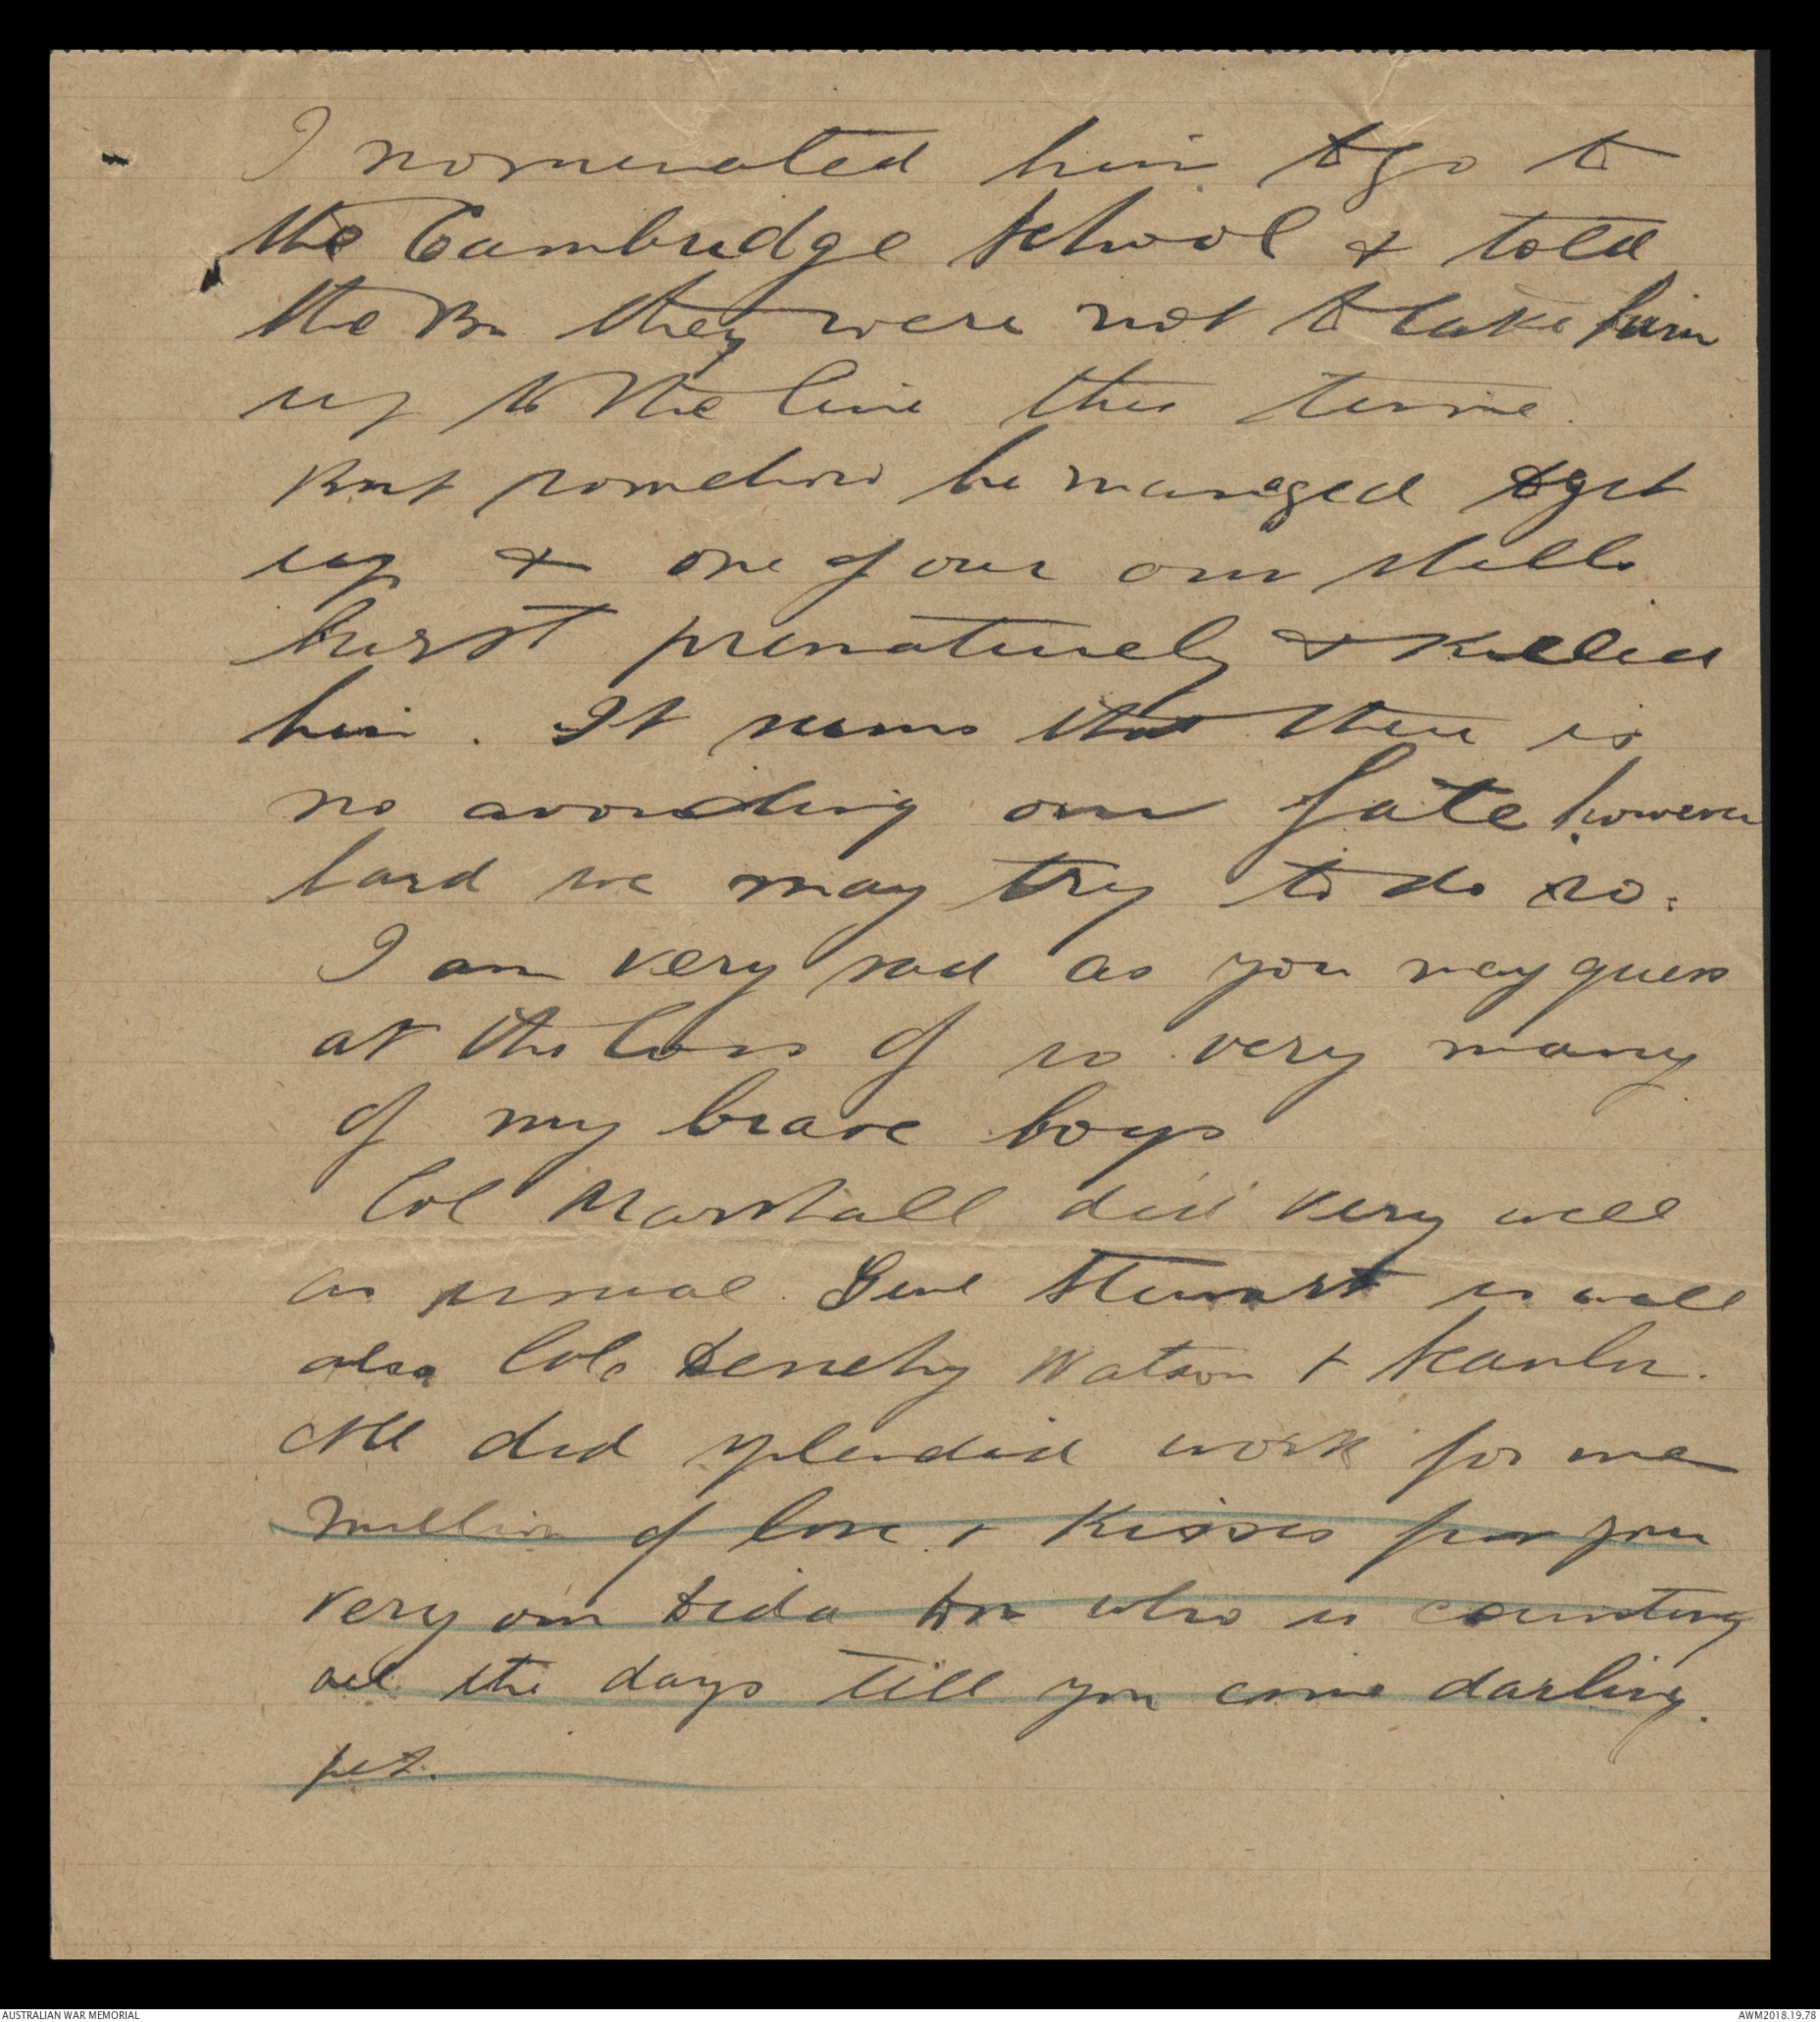 I nominated him to go to
the Cambridge School & told
the Bn they were not to take him
up to the line this time.
But somehow he managed to get
up & one of our own shells
burst prematurely & killed
him. It seems that there is
no avoiding our fate however
hard we may try to do so.
I am very sad as you may guess
at the loss of so very many
of my brave boys
Col Marshall did very well
as usual. Genl Stewart is well
also Cols Denehy Watson & Scanlan.
All did splendid work for me
Million of love & kisses from your
very own Dida Don who is counting
all the days till you come darling
pet.
AUSTRALIAN WAR MEMORIAL
AWM2018.19.78